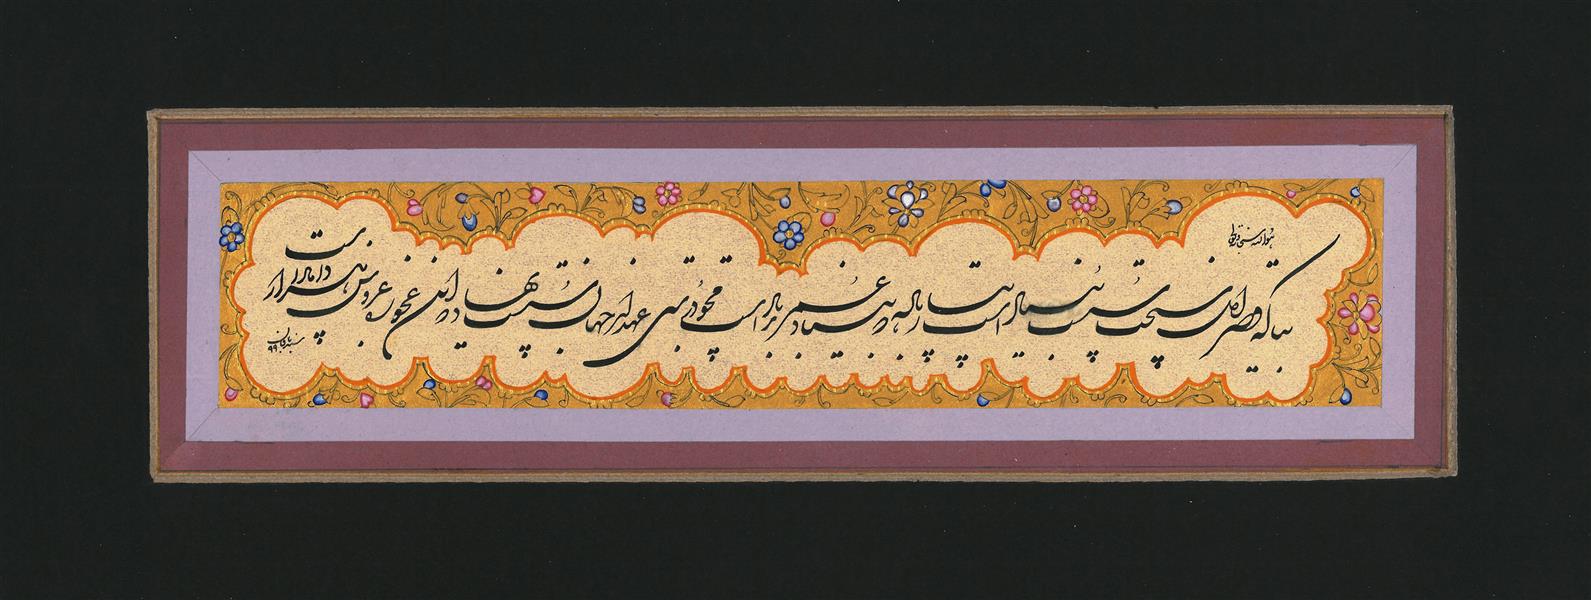 بیا که قصر امل سخت سست بنیاد است بیار باده که بنیاد عمر بر باد است مجو درستی عهد از جهان سست نهاد که این عجوزه عروس هزار داماد است
۹۹